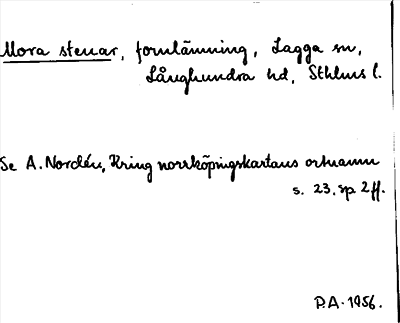 Mora stenar, fornlämning, Lagga sn,
Långhundra hd, Sthlms l.
Se A. Nordén, Kring norrköpingskartans ortnamn
s. 23, sp 2 ff.
P.A. 1956.